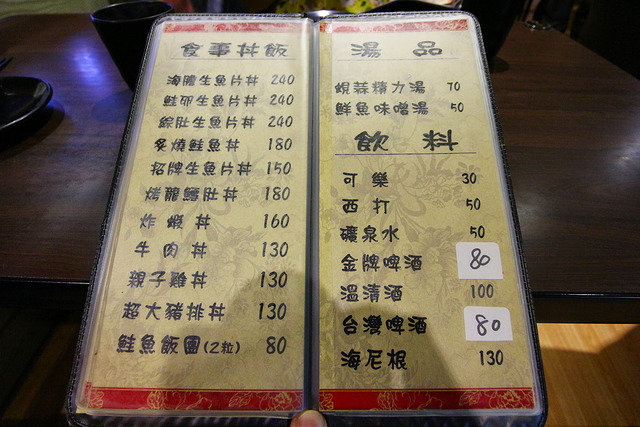 食事丼飯
海膽生魚片丼 240
鮭卵生魚片丼 240
綜肚生魚片丼 240
炙燒鮭魚丼 180
招牌生魚片丼 150
烤龍鱈肚丼 180
炸蝦丼 160
牛肉丼 130
親子雞丼 130
超大豬排丼 130
鮭魚飯團(2粒) 80
湯品
蜆蒜精力湯 70
鮮魚味噌湯 50
飲料
可樂 30
西打 50
礦泉水 50
金牌啤酒 80
溫清酒 100
台灣啤酒 80
海尼根 130